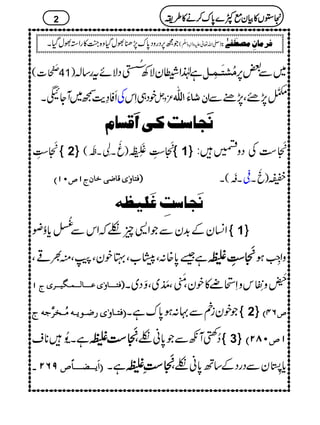 نجاستوں کا بیان مع کپڑے پاک کرنے کا طریقہ
2
فرمانِ مصطفٰے (صلی اللہ تعالیٰ علیہ والہٖ وسلم) مجھ پر درود پاک پڑھنا بھول گیا وہ جنت کا راستہ بھول گیا۔
میں سے بعض پر مُشْتَمِل ہے لہٰذا شیطان لاکھ سُستی دلائے یہ رسالہ (41 صَفَحات)
مکمّل پڑھئے، پڑھنے سے اِن شاءَ اللہ عزوجل خود ہی اس کی اِفادِیَّت سمجھ میں آجائیگی۔
نَجاست کی اَقسام
نَجاست کی دو قسمیں ہیں: {1} نَجاسَتِ غَلِیظَہ (غَ۔لِی۔ظَہ) {2} نَجاسَتِ
خفیفہ (خَ۔فِی۔فَہ)۔ (فتاوٰی قاضی خان ج ۱ ص ۱۰)
نَجاستِ غَلیظہ
{1} انسان کے بدن سے جو ایسی چیز نکلے کہ اس سے غُسل یا وُضو
واجِب ہو نَجاستِ غَلیظہ ہے جیسے پاخانہ، پیشاب، بہتا خون، پیپ، منہ بھر قے،
حَیض و نِفاس و اِستِحاضے کا خون، مَنی، مَذی، وَدی۔ (فتاوٰی عالمگیری ج ۱
ص ۴۶) {2} جو خون زخم سے بہا نہ ہو پاک ہے۔ (فتاوٰی رضویہ مُخرَّجہ ج
۱ ص ۲۸۰) {3} دُکھتی آنکھ سے جو پانی نکلے، نَجاستِ غَلیظہ ہے۔ یُوں ہیں ناف
یا پِستان سے درد کے ساتھ پانی نکلے، نَجاستِ غَلیظہ ہے۔ (اَیضاً ص ۲۶۹۔